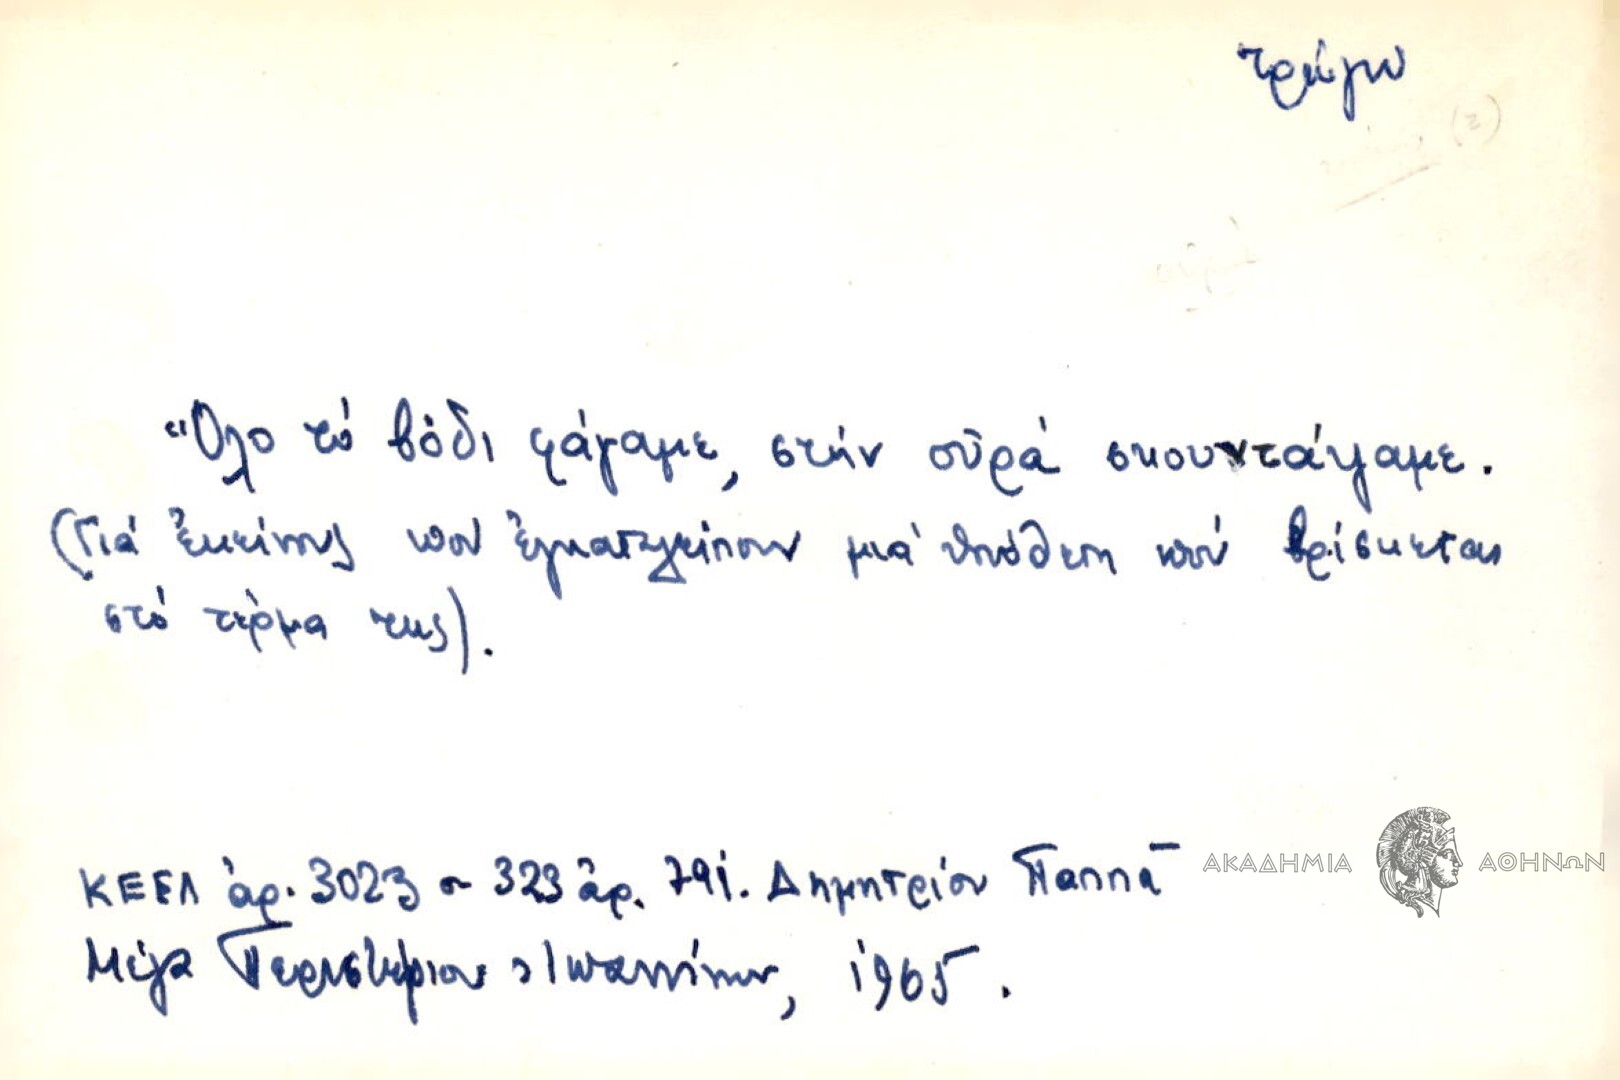 τρώγω
(2)
"Ὅλο τό βόδι φάγαμε, στήν οὐρά σκουντάψαμε.
(Γιά ἐκείνους πού ἐγκαταλείπουν μιά ὑπόθεση πού βρίσκεται
στό τέρμα της).
ΚΕΕΛ ἀρ. 3023 σ 323 ἀρ. 791. Δημητρίου Παππᾶ
Μέγα Περιστέριον Ἰωαννίνων, 1965.
ΑΚΑΔΗΜΙΑ ΑΘΗΝΩΝ